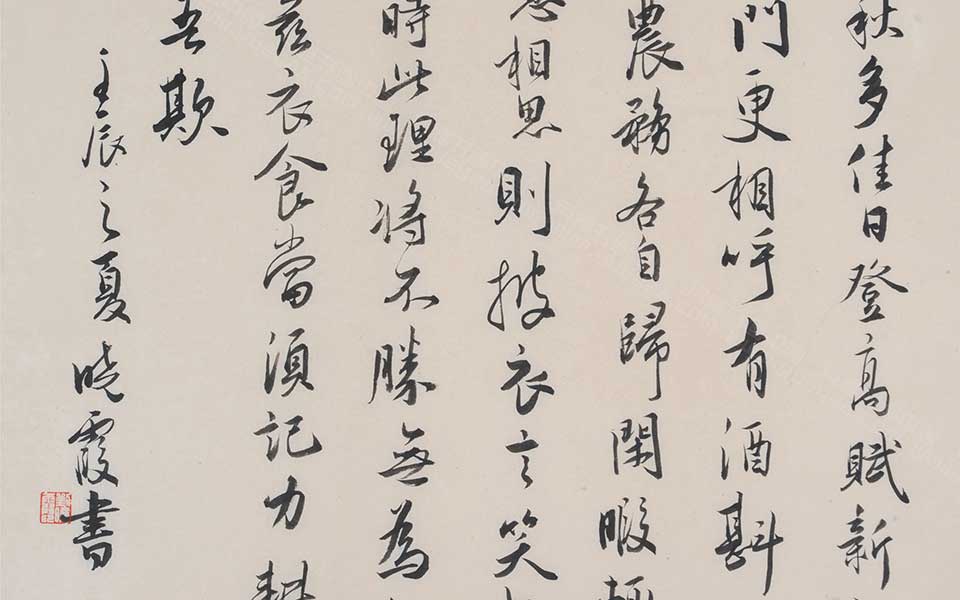 秋多佳日登高賦新
門更相呼有酒斟
農務各自歸閑暇
思相思則披衣言笑
時此理將不勝無為
茲衣食當須記力耕
吾欺
壬辰之夏晓霞書